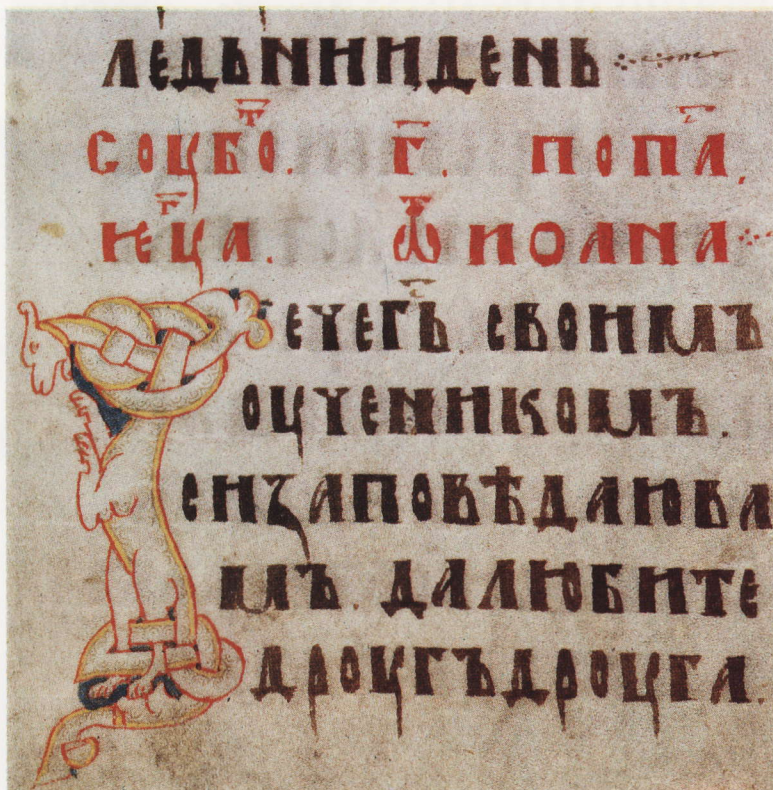 ледьниндень
соуⷮбо. г҃. попⷶл.
неⷣца. ѿ иоана
Рече гь҃. своимъ
оученикомъ.
си заповѣдаю ва
мъ. да любите
дроугъ дроуга.